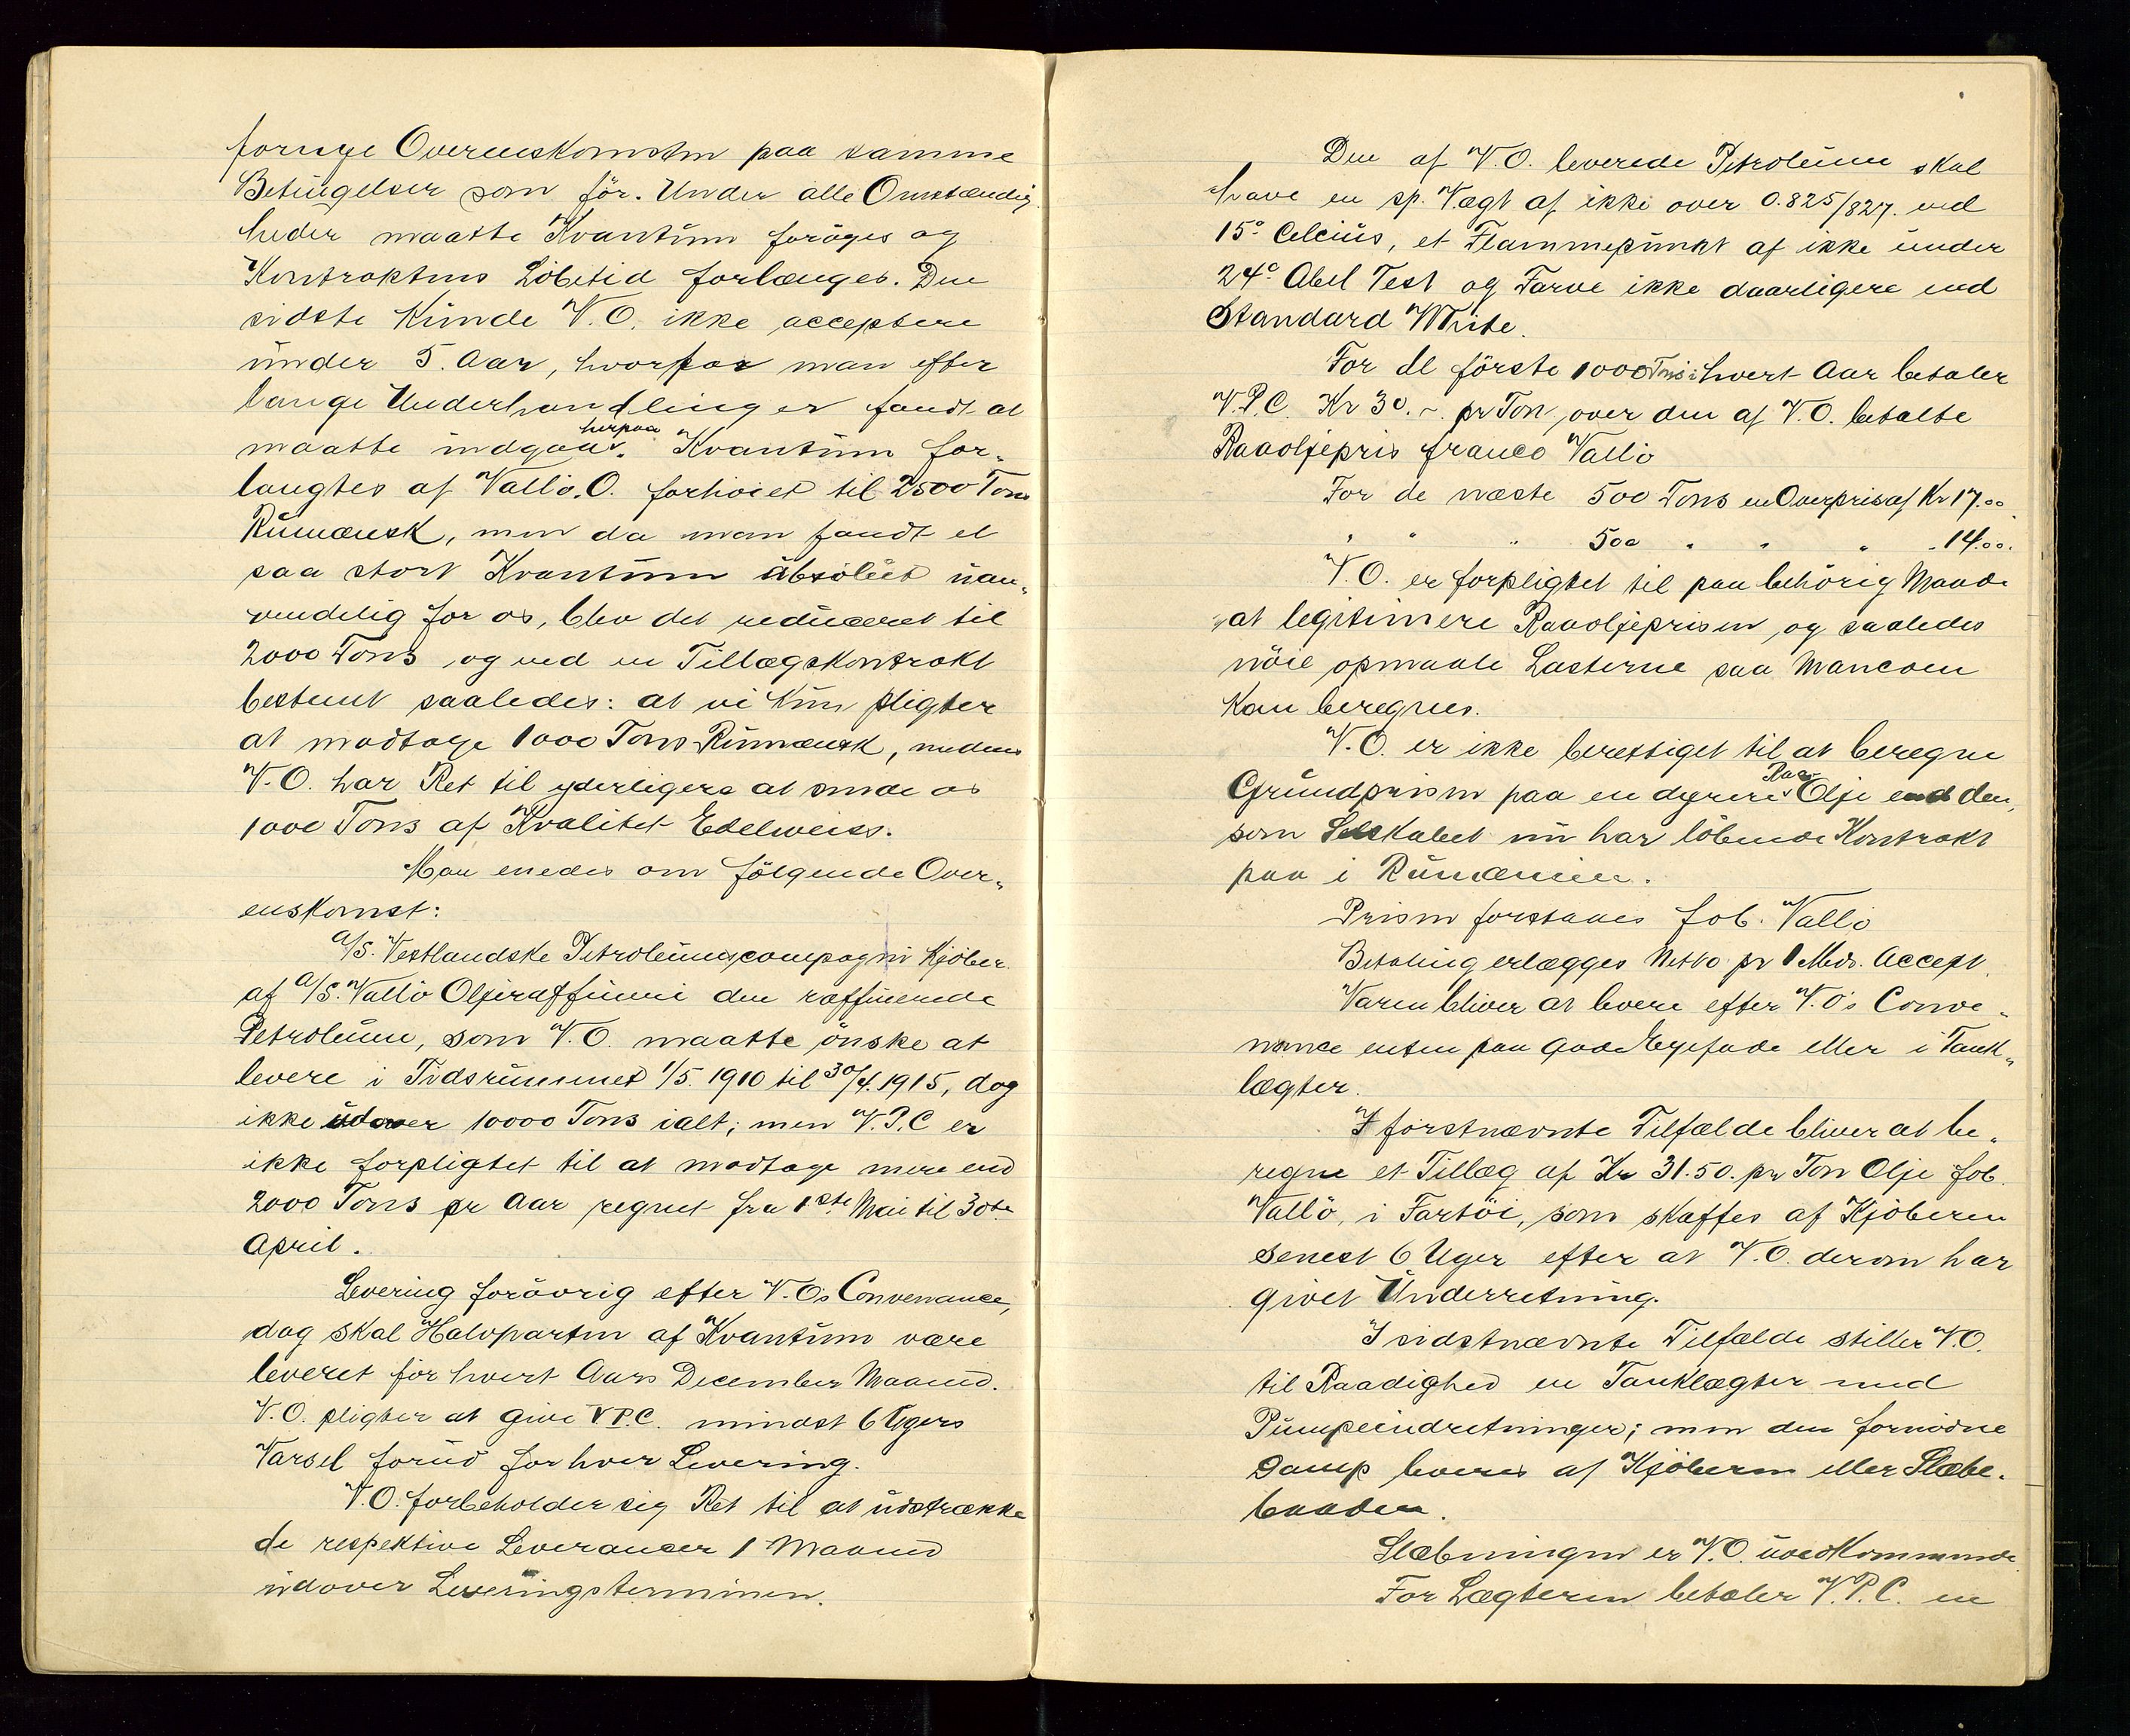 fornye Overenskomsten paa samme
Betingelser som för. Under alle Omstændig-
heder maatte Kvantum foröges og
Kontraktens Löbetid forlænges. Den
sidste Kunde V.O. ikke acceptere
under 5. Aar, hvorfor man efter
lange Underhandlinger fandt at
maatte indgaa herpaa. Kvantum for-
langtes af Vallö. O. forhöiet til 2500 Tons
Rumænsk, men da man fandt et
saa stort Kvantum absolut uan-
vendelig for os, blev det reduceret til
2000 Tons og ved en Tillægskontrakt
bestemt saaledes: at vi Kun pligter
at modtage 1000 Tons Rumænsk, medens
V.O. har Ret til yderligere at sende os
1000 Tons af Kvalitet Edelweiss.
Man enedes om fölgende Over-
enskomst:
A/S. Vestlandske Petroleumscompagni Kjöber
af A/S. Vallö Oljeraffineri den raffinerede
Petroleum, som V.O. maatte önske at
levere i Tidsrummet 1/5. 1910 til 30/4. 1915, dog
ikke udover 10000 Tons ialt; men V.P.C er
ikke forpligtet til at modtage mere end
2000 Tons pr Aar regnet fra 1ste Mai til 30te
April.
Levering forövrig efter V.O's Convenance,
dog skal Halvparten af Kvantum være
leveret för hvert Aars December Maaned.
V.O. pligter at give V.P.C. mindst 6 Ugers
Varsel forud for hver Levering.
V.O. forbeholder sig Ret til at udstrække
de respektive Leverancer 1 Maaned
udover Leveringsterminen.
Den af V.O. leverede Petroleum skal
have en sp. Vægt af ikke over 0.825/827. ved
15° Celcius, et Flammepunkt af ikke under
24° Abel Test og Farve ikke daarligere end
Standard White.
For de förste 1000 Tons i hvert Aar betaler
V.P.C. Kr 30.- pr Ton, over den af V.O. betalte
Raaoljepris franco Vallö
For de næste 500 Tons en Overpris af Kr 17.00
" " " 500 " " " " 14.00.
V.O. er forpligtet til paa behörig Maade
at legitimere Raaoljeprisen, og saaledes
nöie opmaale Lasterne saa Mancoen
Kan beregnes.
V.O. er ikke berettiget til at beregne
Grundprisen paa en dyrere Raa-Olje end den,
som Selskabet nu har löbende Kontrakt
paa i Rumænien.
Prisen forstaaes fob. Vallö
Betaling erlægges Netto pr 1 Mdr. Accept.
Varen bliver at levere efter V.O's Conve-
nance enten paa gode Egefade eller i Tank-
lægter.
I förstnævnte Tilfælde bliver at be-
regne et Tillæg af Kr 31.50. pr Ton Olje fob.
Vallö, i Fartöi, som skaffes af Kjöberen
senest 6 Uger efter at V.O. derom har
givet Underretning.
I sidstnævnte Tilfælde stiller V.O.
til Raadighed en Tanklægter med
Pumpeindretninger; men den fornödne
Damp leveres af Kjöberen eller Slæbe-
baaden.
Slæbningen er V.O. uvedkommende.
For Lægteren betaler V.P.C. en